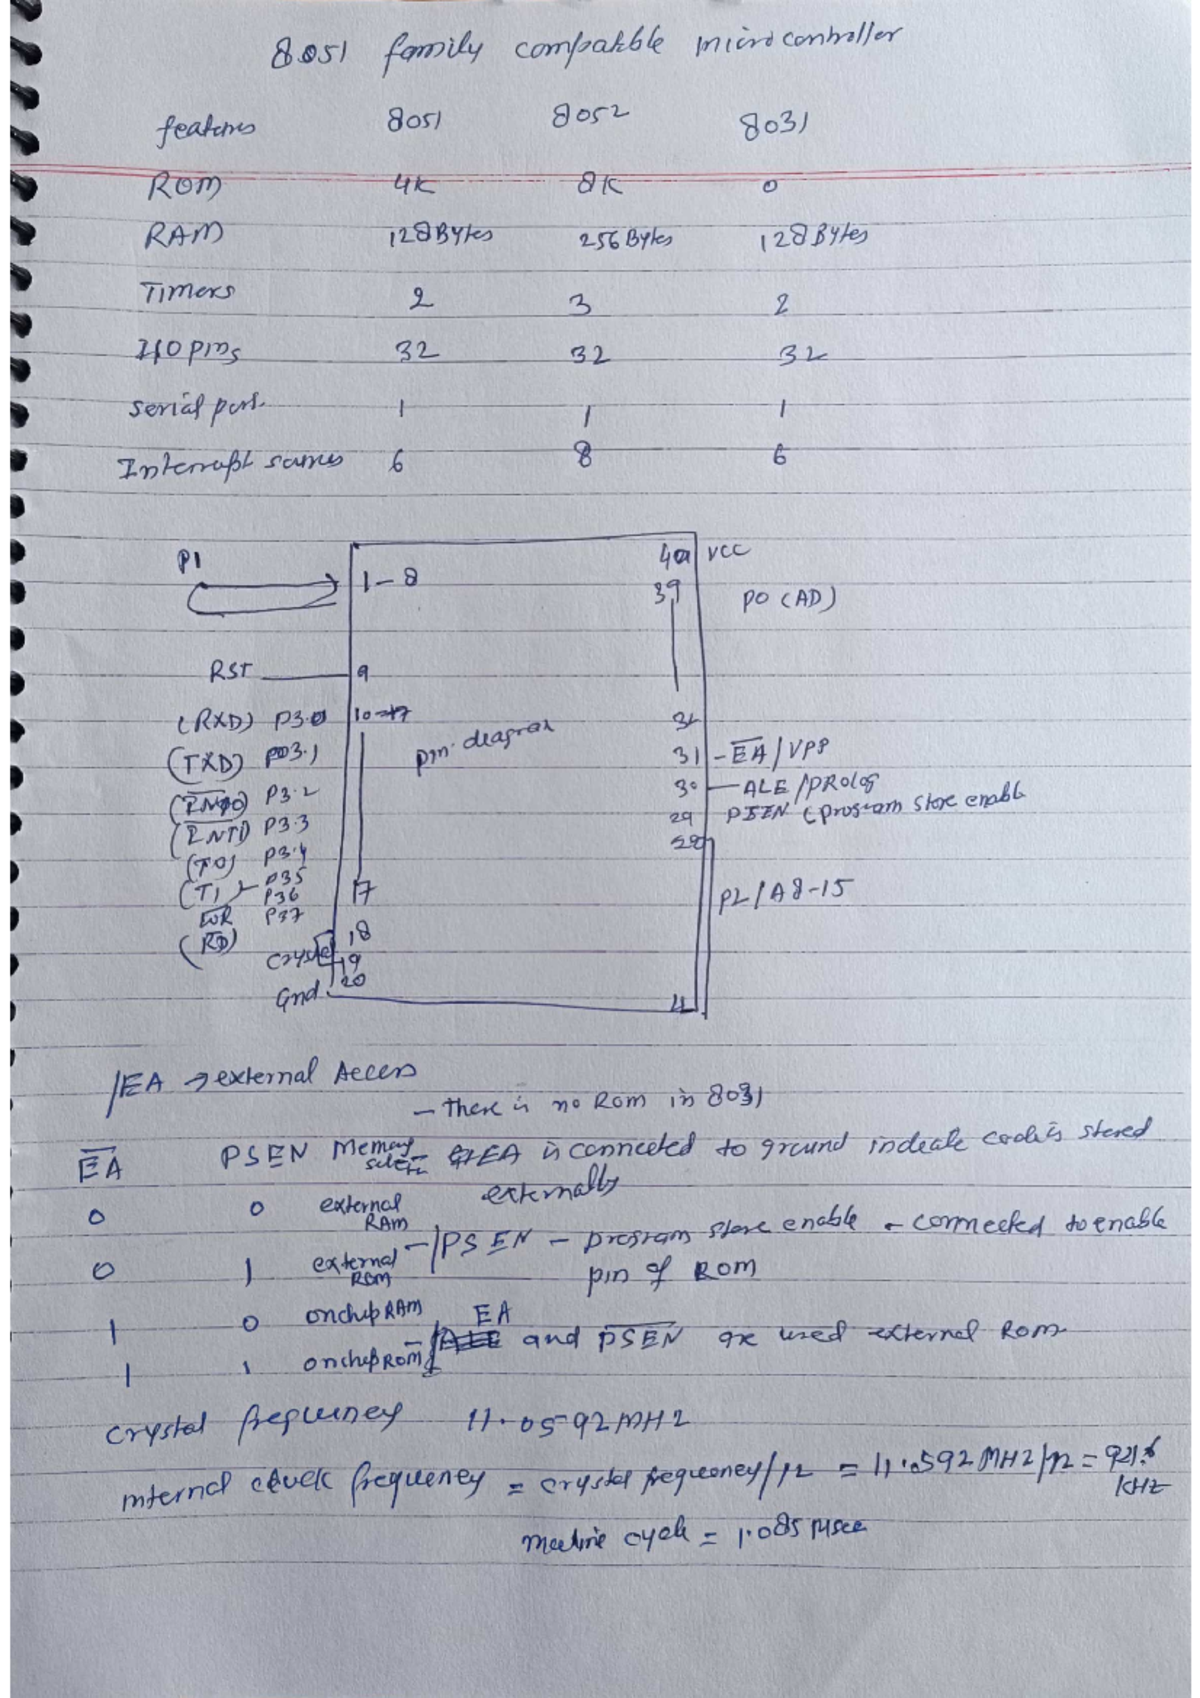 8051 family compatible microcontroller
features 8051 8052 8031
ROM 4K 8K 0
RAM 128Bytes 256Bytes 128Bytes
Timers 2 3 2
I/O pins 32 32 32
serial port 1 1 1
Interrupt sources 6 8 6
P1 1-8 40 VCC
39 PO (AD)
RST 9
(RXD) P3.0 10-17 32
(TXD) P03.1 pin diagram 31 - EA/VPP
(INT0) P3.2 30 - ALE/PROlog
(INT1) P3.3 29 PSEN (program store enable
(T0) P3.4 28
(T1) P35 17 P2/A8-15
WR P36
(RD) P37
18
crystal 19
Gnd 20 21
/EA → external Access
- there is no Rom in 8031
EA PSEN Memory select - EA is connected to ground indicate code is stored
externally
0 0 external RAM
- /PSEN - program store enable - connected to enable
0 1 external ROM pin of ROM
1 0 onchip RAM EA
- / ALE and PSEN are used external Rom
1 1 onchip ROM
crystal frequency 11.0592MHZ
internal clock frequency = crystal frequency/12 = 11.0592MHZ/12 = 921.6 KHZ
machine cycle = 1.085 μsec